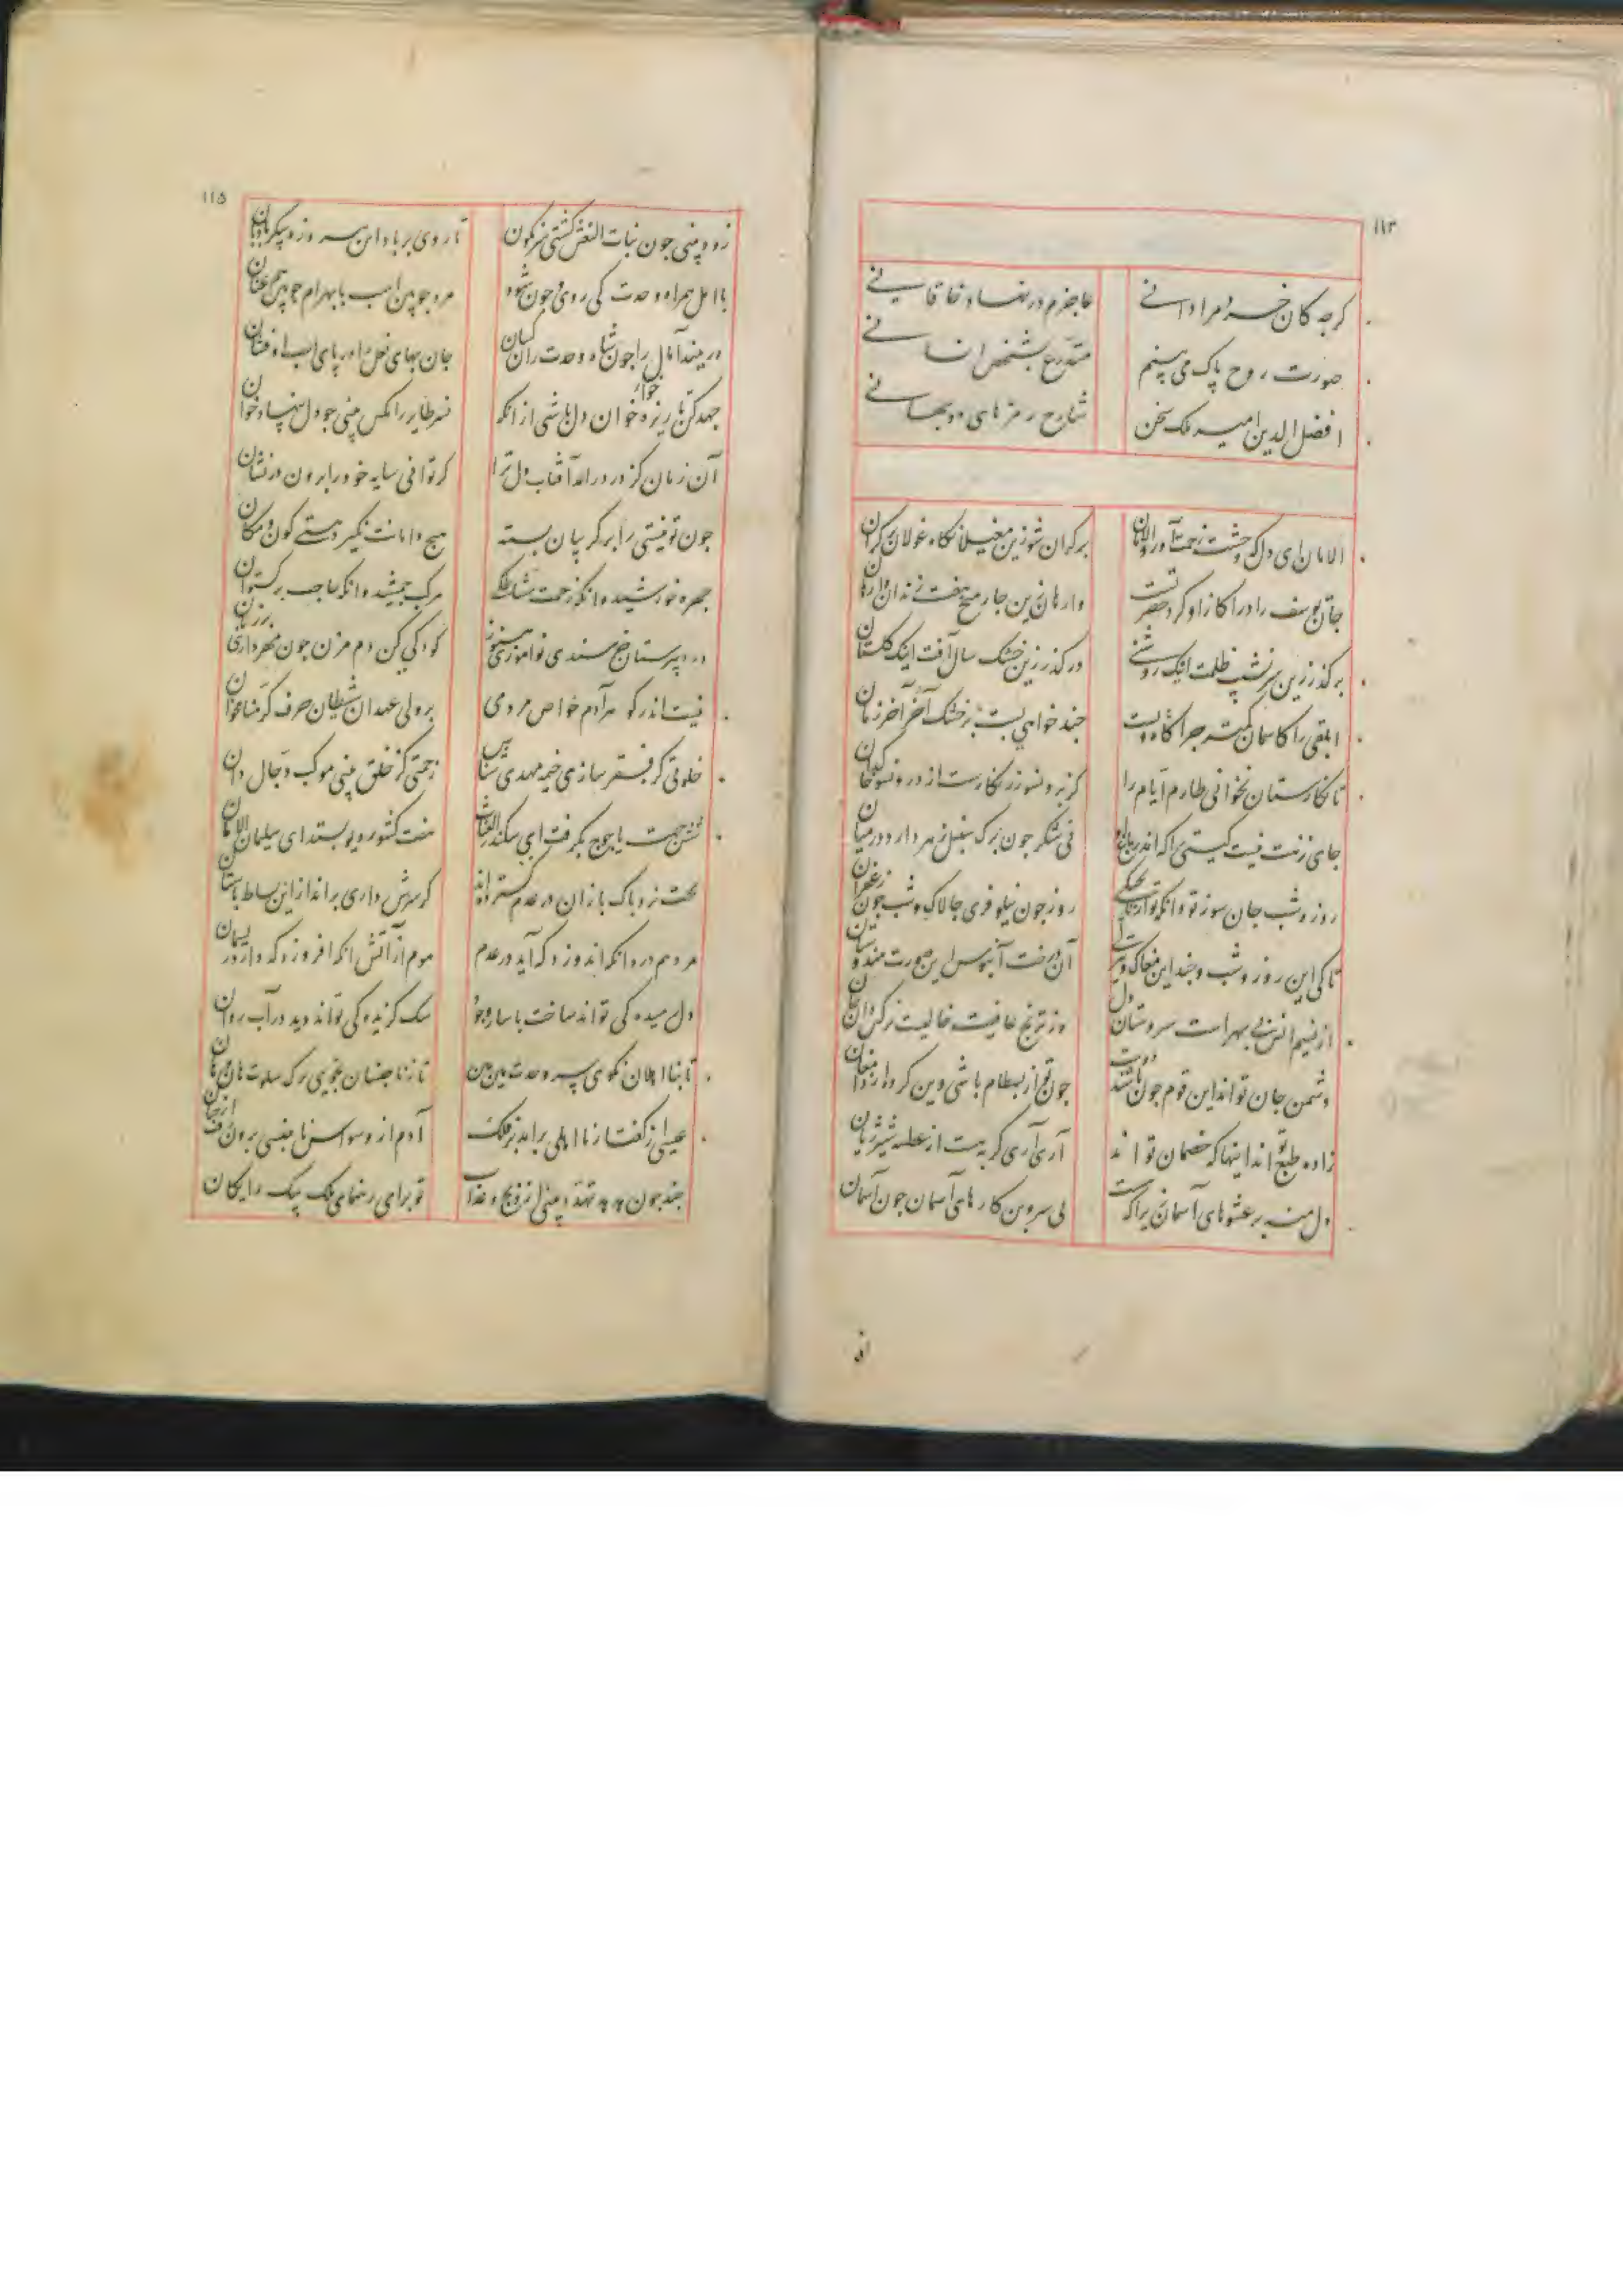 ۱۱۳
کرچه کان خسرو مراد انی عاجزم در نهاد خاقانی
صورت روح پاک می‌بینم متدرع بشخص انسانی
افضل الدین امیر ملک سخن شارح رمزهای دوجهانی
الامان ای دل که وحشت زحمت آورد الامان بر کران شو زین مغیلانکاه غولان بر کران
برکذر زین سردسیر ظلمت اینک روشنی درکذر زین خشک سال آفت اینک کلستان
جان یوسف زاد را کازاد کرد حضرتست وارهان زین چار میخ هفت زندان وارهان
ابلقی را کاسمان کمتر چراکاه ویست چند خواهی بست بر خشک آخر آخر زمان
تا نکارستان نخوانی طارم ایام را کز برونسو زرنکارست از درونسو خاکدان
جای نزهت نیست کیتی را که اندر باغ او نی شکر چون برک سنبل زهر دارد در میان
روز و شب جان سوزی و انکه تو از ناپختکی روز چون نیلوفری چالاک و شب چون زعفران
تا کی این روز و شب و چند این مغاک و تیرکی آن درخت آبنوس این صورت هندوستان
از نسیم انس بی بهر است سروستان دل وز ترنج عافیت خالیست نرکس‌دان جان
دشمن جان تواند این قوم چون باشند دوست چون تو از بسطام باشی وین کروه از دامغان
زاده طبع تواند اینها که خصمان تو اند آری آری کربه هست از عطسه شیر ژیان
دل منه بر عشوهای آسمان زیرا که هست بی سر و بن کارهای آسمان چون آسمان
۱۱۵
زود بینی چون بنات النعش کشتی سرنکون تا روی بر باد این پیروزه پیکر بادبان
با امل همراه وحدت کی روی چون شود مرد چوبین اسب با بهرام چوبین هم عنان
در میند آمال را چون شاه وحدت ران کسان جان بهای نعل را در پای اسب او فشان
جهد کن تا ریزه خوار خوان دل باشی از آنک نسر طایر را مکس بینی چو دل بنهاد خوان
آن زمان کز در درآید آفتاب دل ترا کر توانی سایه خود را برون در نشان
چون تو نیستی را بر کریبان بسته هیچ دامانت نکیرد هستی کون و مکان
چهره خورشید و انکه زحمت مشاطکی مرکب جمشید و انکه حاجب برکستوان
در دبیرستان خرسندی نوآموزی هنوز کودکی کن دم مزن چون مهر داری بر زبان
نیست اندر کوهر آدم خواص مردمی بر ولی عهدان شیطان حرف کرمنا مخوان
خلوتی کز فقر سازی خیمه مهدی شناس زحمتی کز خلق بینی موکب دجال دان
شش جهت یاجوج بکرفت ای سکندر الغیاث هفت کشور دیو بستد ای سلیمان الامان
تخت نرد پاک بازان در عدم کسترده‌اند کر سرش داری برانداز این بساط باستان
مردم درد انکه اندوزد که آید در عدم موم از آتش انکه افروزد که دارد ریسمان
دل رمیده کی تواند ساخت با ساز وجود سک کزیده کی تواند دید در آب روان
تا بنااهلان نکوی سر وحدت هین و هین تا ز ناجنسان نجویی برک سلوت هان و هان
عیسی از کفتار نااهلی برآمد بر فلک آدم از وسواس ناجنسی برون رفت از جنان
چند چون هدهد تهدد بینی از رنج و عذاب تو برای رهنمای ملک پیک رایکان